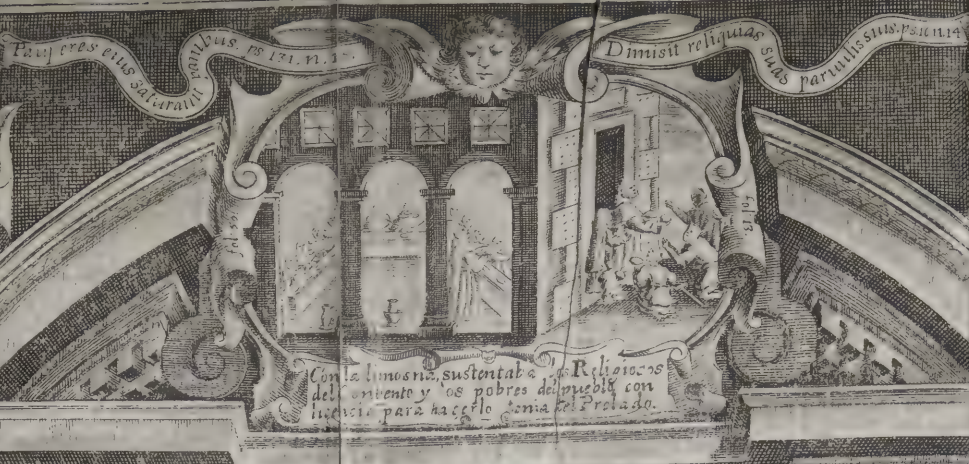 Paup eres eius saturabit panibus. ps 131. n.
Dimisit reliquias suas paruulis suis. ps. n. 14
Con la limosna, sustentaba los Religiosos
del Conbento y los pobres del pueblo con
licencia para hacerlo tenia del Prelado.